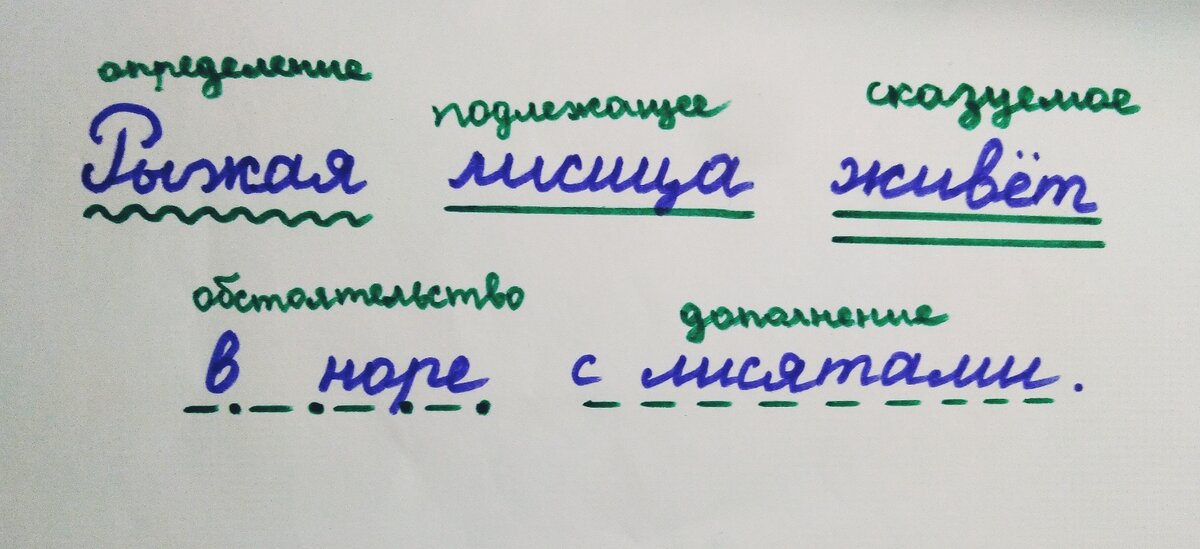 определение подлежащее сказуемое
Рыжая лисица живёт
обстоятельство дополнение
в норе с лисятами.